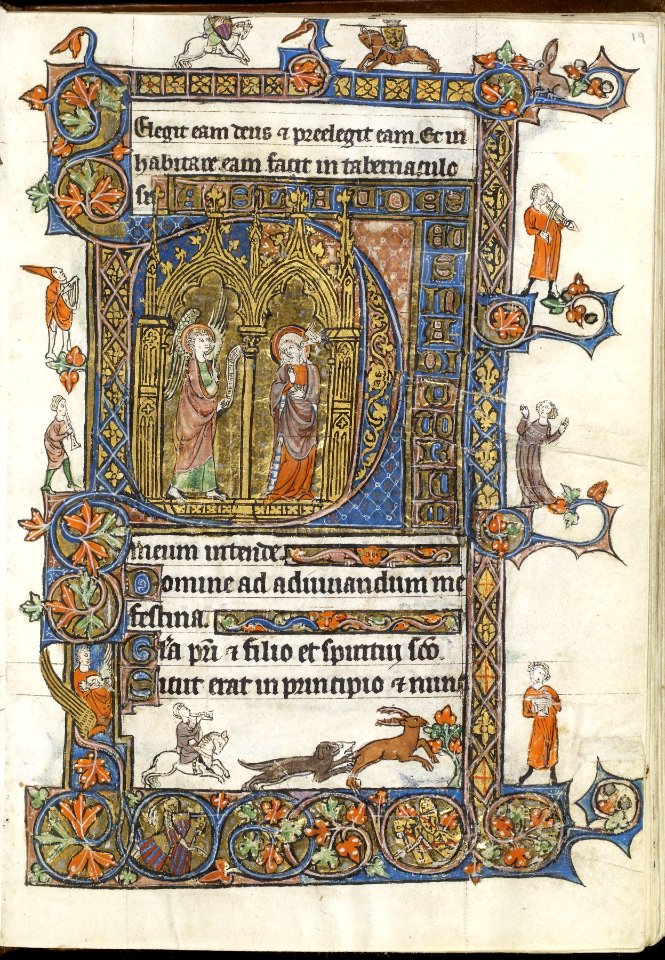 19
Elegit eam deus ⁊ preelegit eam. Et in
habitare eam facit in tabernaculo
AD LAUDES
D
EUS IN ADIUTORIUM
meum intende.
Domine ad adiuuandum me
festina.
Gła pri ⁊ filio et spiritui sco
Sicut erat in principio ⁊ nunc